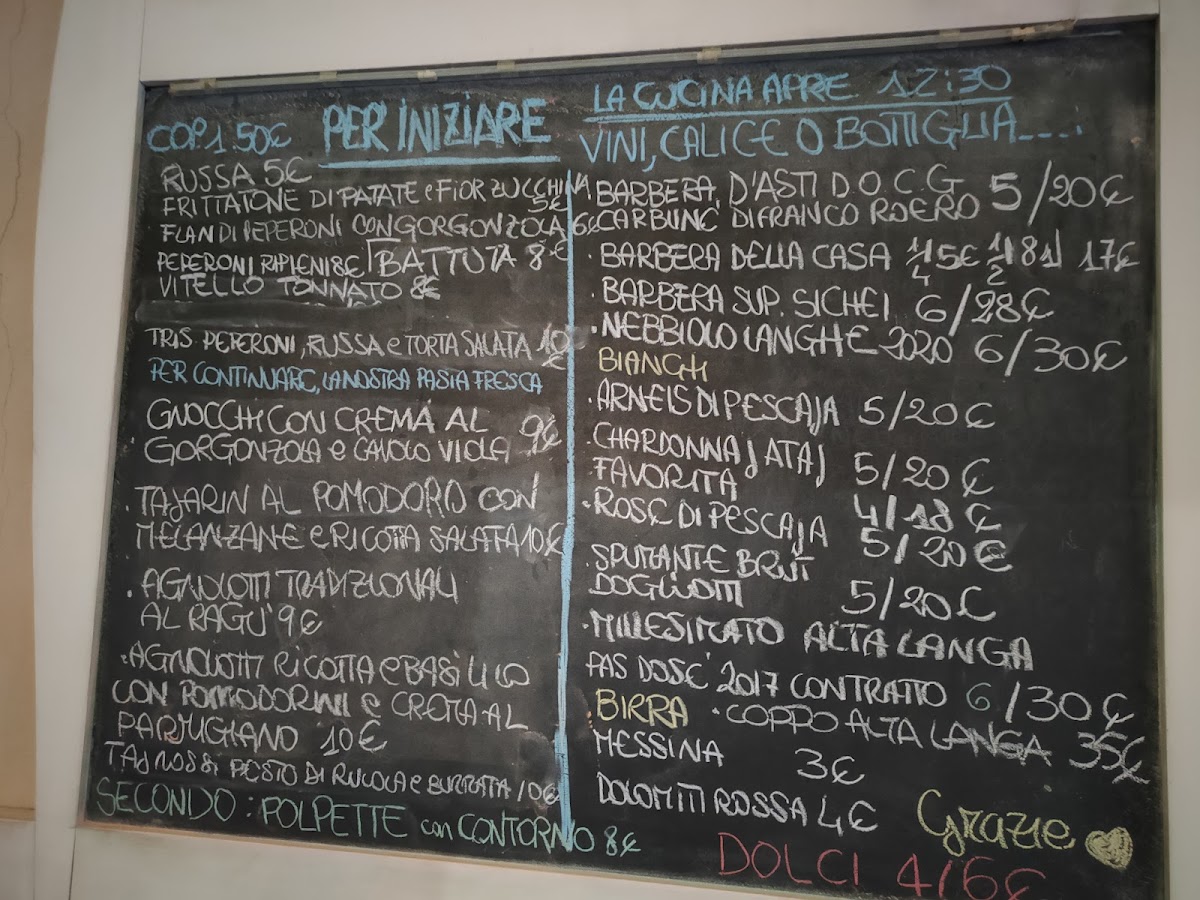 COP. 1.50€
PER INIZIARE
RUSSA 5€
FRITTATONE DI PATATE e FIOR ZUCCHINA
5€
FLAN DI PEPERONI CON GORGONZOLA 6€
PEPERONI RIPIENI 8€ BATTUTA 8€
VITELLO TONNATO 8€
TRIS PEPERONI, RUSSA e TORTA SALATA 10
€
PER CONTINUARE, LA NOSTRA PASTA FRESCA
GNOCCHI CON CREMA AL
GORGONZOLA e CAVOLO VIOLA 9€
• TAJARIN AL POMODORO CON
MELANZANE e RICOTTA SALATA 10€
• AGNOLOTTI TRADIZIONALI
AL RAGU' 9€
• AGNOLOTTI RICOTTA e BASILICO
CON POMODORINI e CREMA AL
PARMIGIANO 10€
TAJ ROSSI PESTO DI RUCOLA e BURRATA 10€
SECONDO: POLPETTE con CONTORNO 8€
LA CUCINA APRE 12:30
VINI, CALICE O BOTTIGLIA....:
• BARBERA D'ASTI D.O.C.G 5/20€
CARLINE DI FRANCO ROERO
• BARBERA DELLA CASA 1/4 5€ 1/2 8 1l 17€
• BARBERA SUP. SICHEI 6/28€
• NEBBIOLO LANGHE 2020 6/30€
BIANCHI
• ARNEIS DI PESCAJA 5/20€
• CHARDONNAJ ATAJ 5/20€
FAVORITA 4/18€
• ROSE DI PESCAJA 5/20€
• SPUMANTE BRUT
DOGLIOTTI 5/20€
• MILLESIMATO ALTA LANGA
PAS DOSE' 2017 CONTRATTO 6/30€
• BIRRA • COPPO ALTA LANGA 35€
MESSINA 3€
DOLOMITI ROSSA 4€
Grazie
DOLCI 4/6€